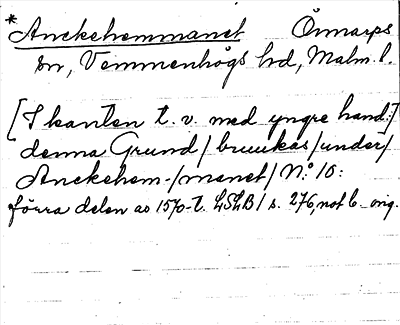 *Anckehemmanet Önnarps
sn, Vemmenhögs hd, Malm. l.
[I kanten t. v. med yngre hand:]
denna Grund/ bruukas/under/
Anckehem-/manet/ N:o 10:
förra delen av 1570-t. LSLB1 s. 276, not b_ orig.